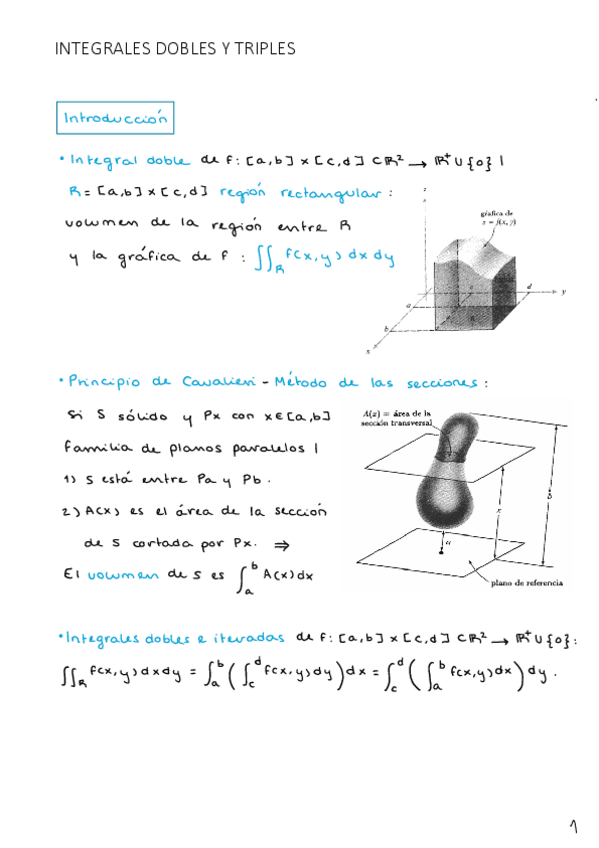 INTEGRALES DOBLES Y TRIPLES
Introducción
• Integral doble de f: [a,b] × [c,d] ⊂ ℝ² → ℝ⁺ ∪ {0} |
R = [a,b] × [c,d] región rectangular :
volumen de la región entre R
y la gráfica de f : ∬_R f(x,y) dx dy
z
gráfica de
z = f(x, y)
c
d
y
a
R
b
x
• Principio de Cavalieri - Método de las secciones :
Si S sólido y Px con x∈[a,b]
familia de planos paralelos |
1) S está entre Pa y Pb.
2) A(x) es el área de la sección
de S cortada por Px. ⇒
El volumen de S es ∫_a^b A(x) dx
A(x) = área de la
sección transversal
b
x
a
plano de referencia
• Integrales dobles e iteradas de f: [a,b] × [c,d] ⊂ ℝ² → ℝ⁺ ∪ {0} :
∬_R f(x,y) dx dy = ∫_a^b ( ∫_c^d f(x,y) dy ) dx = ∫_c^d ( ∫_a^b f(x,y) dx ) dy .
1